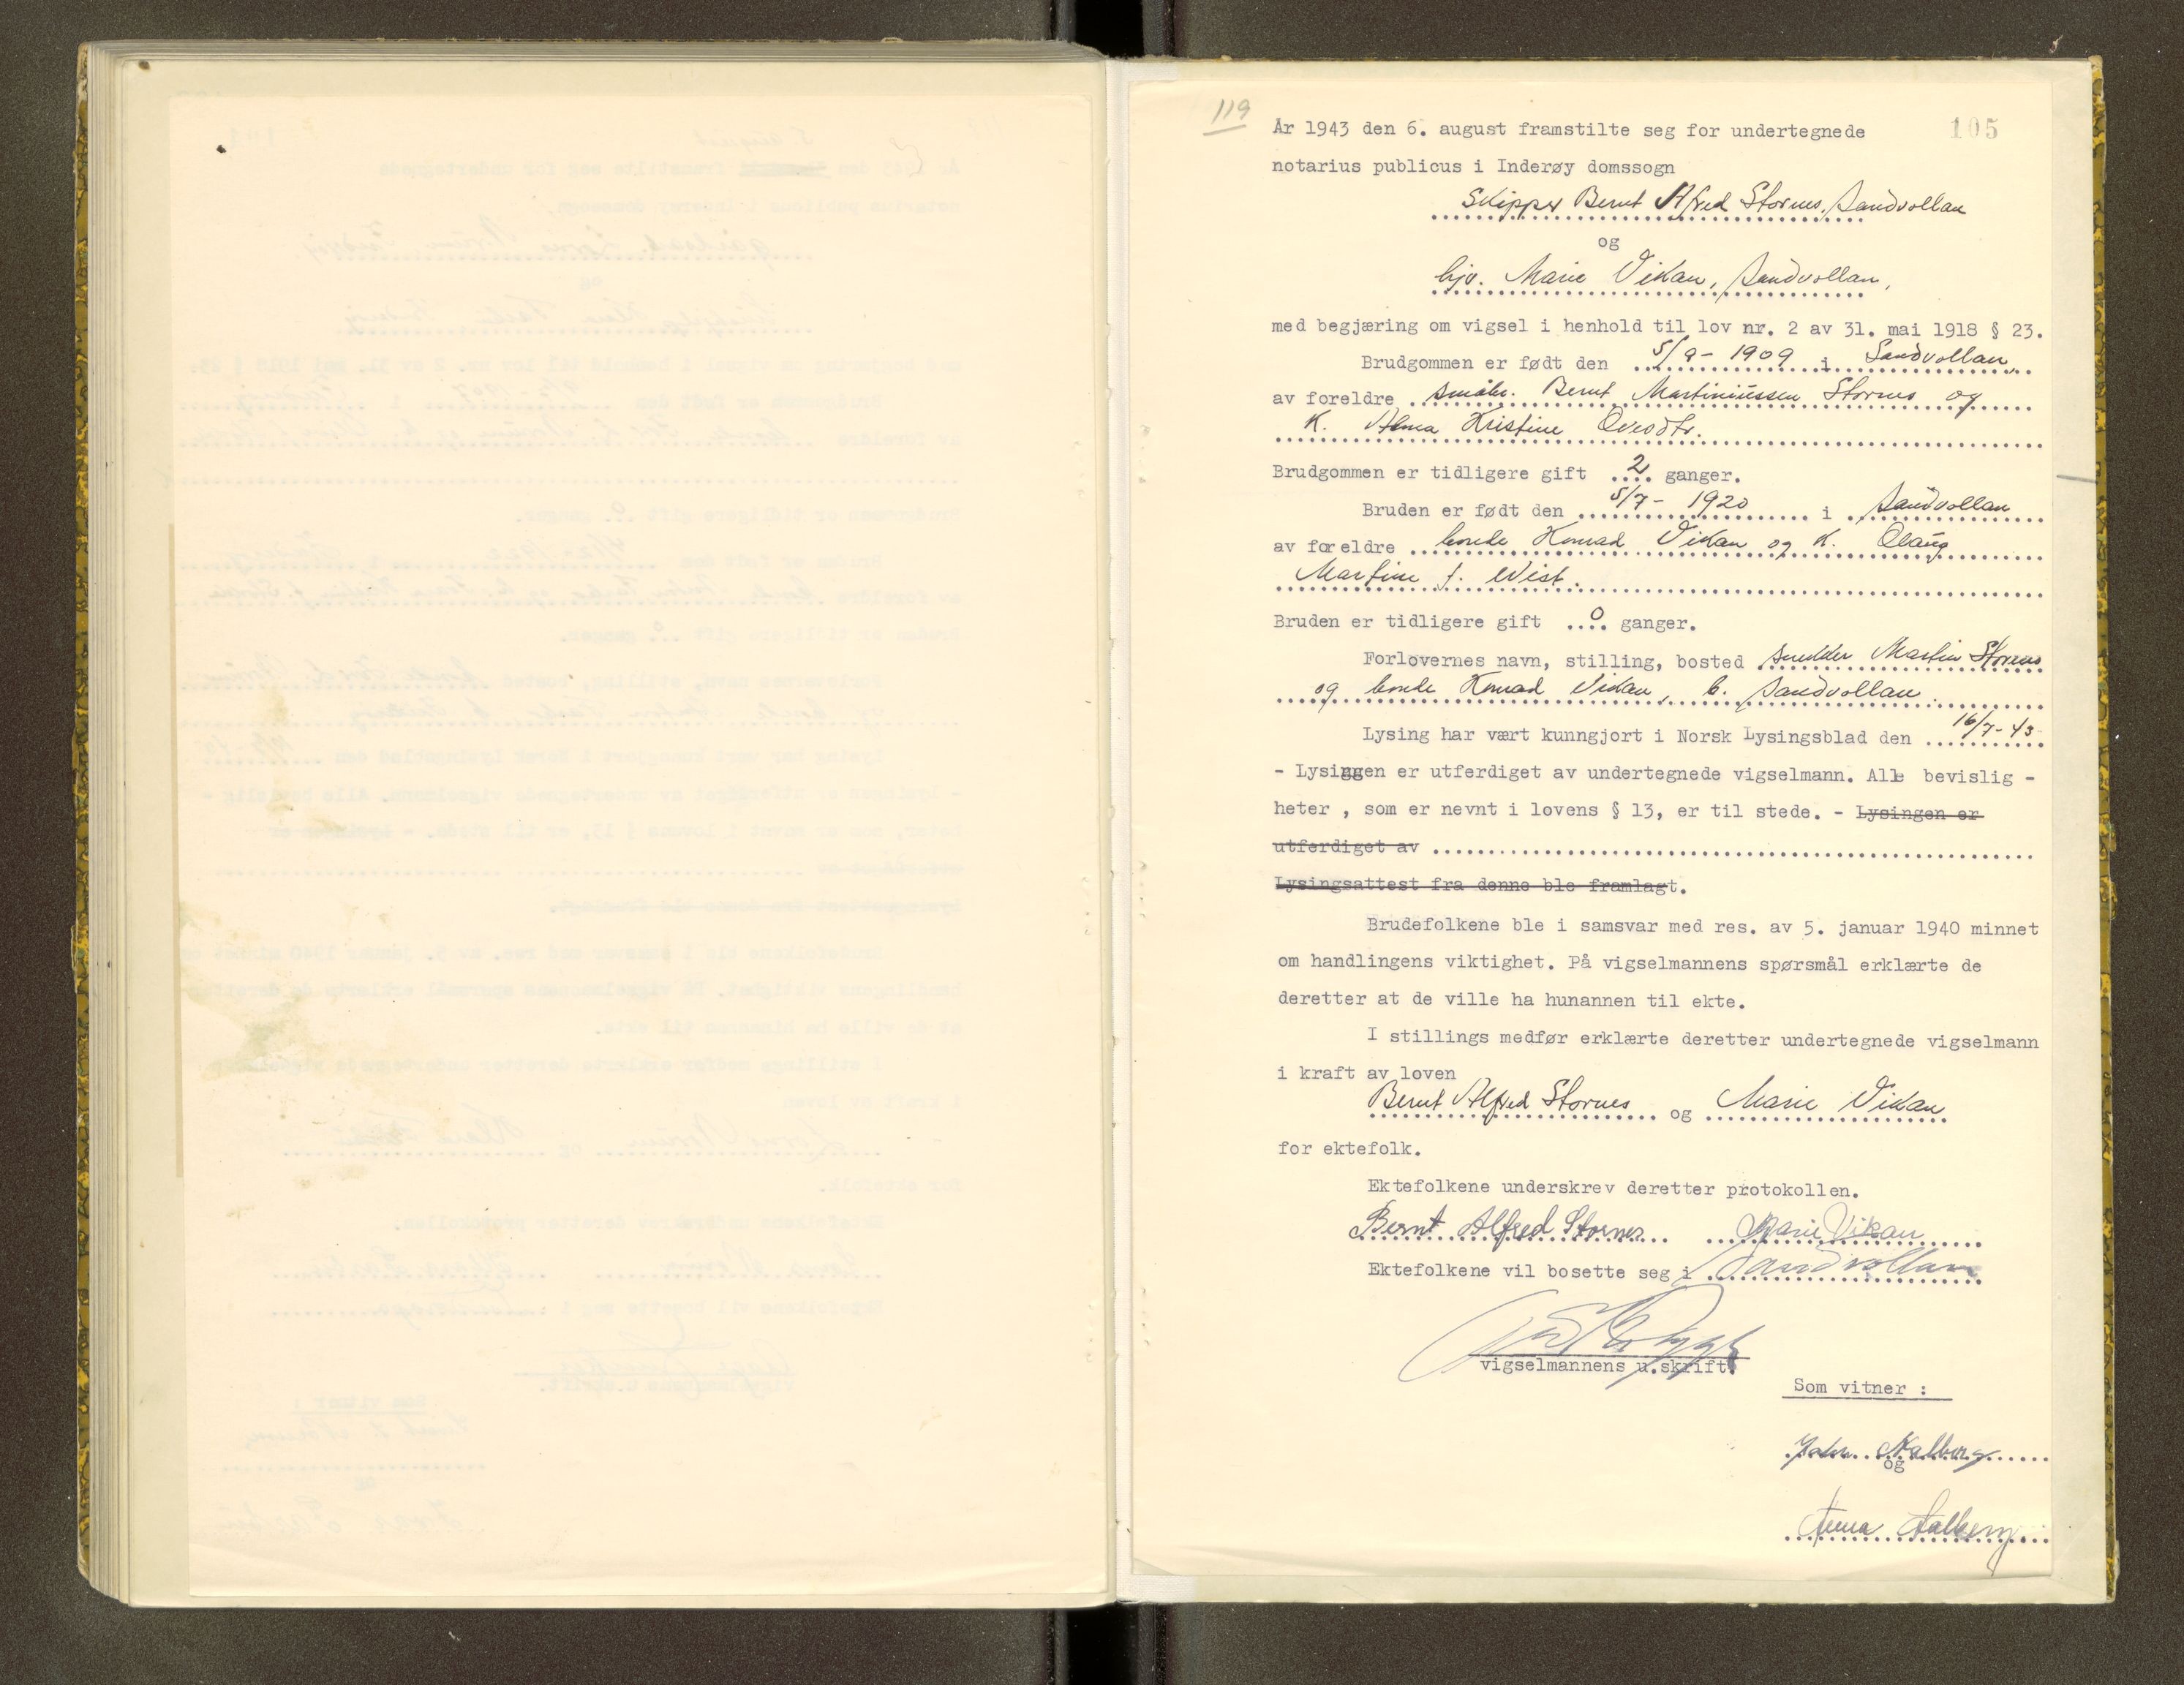 119
105
År 1943 den 6. august framstilte seg for undertegnede
notarius publicus i Inderøy domssogn
Skipper Bernt Alfred Stornes, Sandvollan
og
hjv. Marie Vikan, Sandvollan,
med begjæring om vigsel i henhold til lov nr. 2 av 31. mai 1918 § 23.
Brudgommen er født den 5/9 - 1909 i Sandvollan
av foreldre småbr. Bernt Martiniussen Stornes og
k. Alma Kristine
Brudgommen er tidligere gift 2 ganger.
Bruden er født den 5/7 - 1920 i Sandvollan
av foreldre bonde Konrad Vikan og k. Olaug
Martine f. Wist.
Bruden er tidligere gift 0 ganger.
Forlovernes navn, stilling, bosted snekker Martin Stornes
og bonde Konrad Vikan, b. Sandvollan.
Lysing har vært kunngjort i Norsk Lysingsblad den 16/7-43
- Lysingen er utferdiget av undertegnede vigselmann. Alle bevislig -
heter , som er nevnt i lovens § 13, er til stede. - Lysingen er
utferdiget av
Lysingsattest fra denne ble framlagt.
Brudefolkene ble i samsvar med res. av 5. januar 1940 minnet
om handlingens viktighet. På vigselmannens spørsmål erklærte de
deretter at de ville ha hunannen til ekte.
I stillings medfør erklærte deretter undertegnede vigselmann
i kraft av loven
Bernt Alfred Stornes og Marie Vikan
for ektefolk.
Ektefolkene underskrev deretter protokollen.
Bernt Alfred Stornes Marie Vikan
Ektefolkene vil bosette seg i Sandvollan
vigselmannens u.skrift.
Som vitner :
og
Anna Aalberg